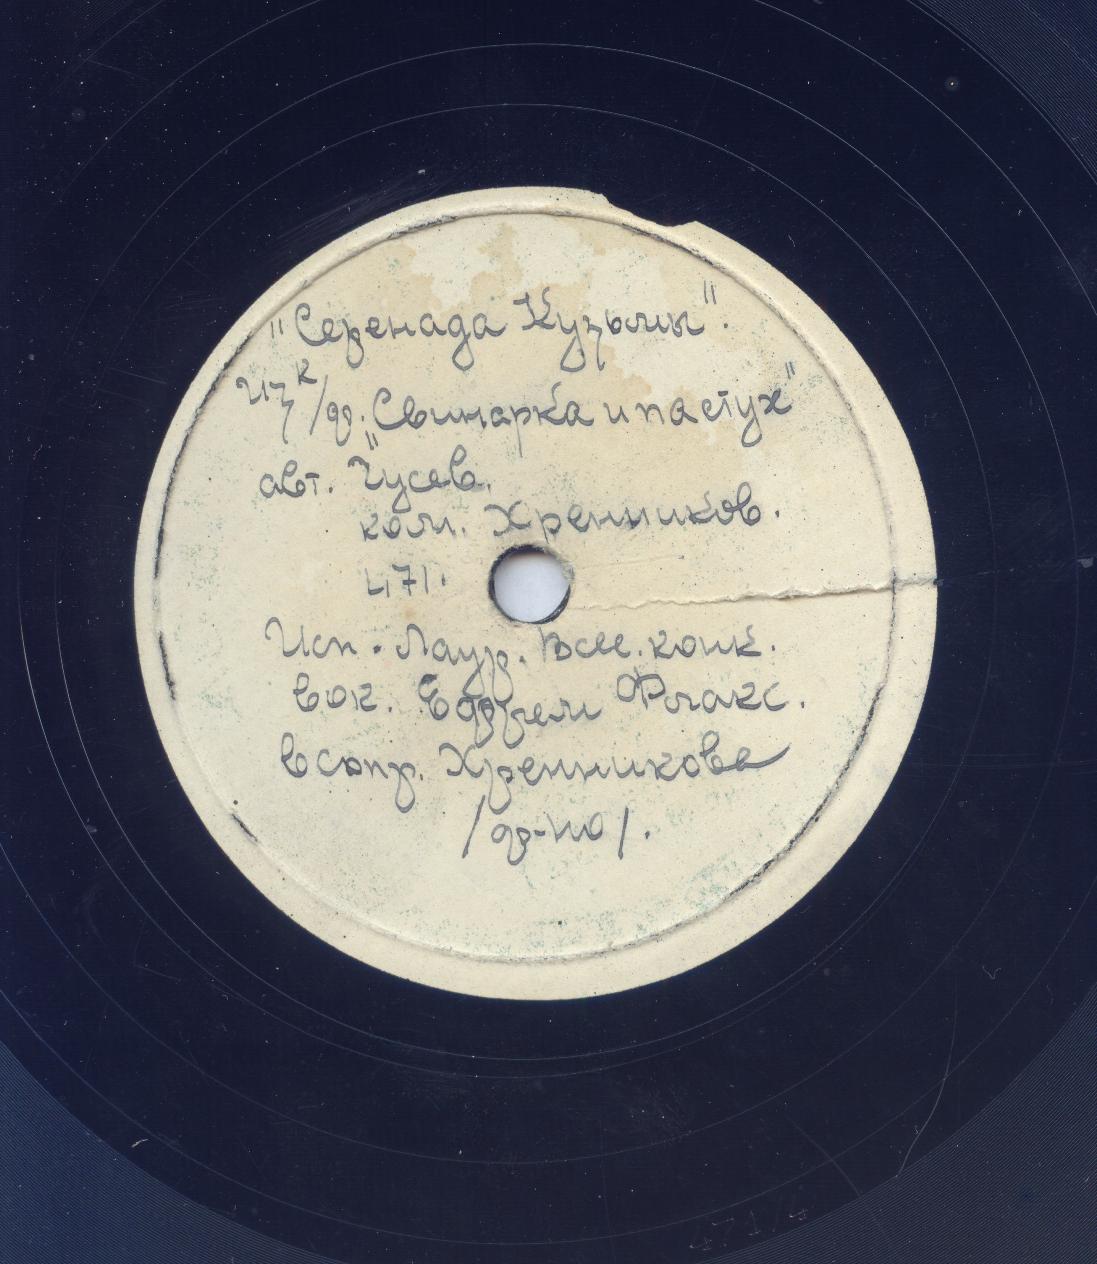 "Серенада Кузьмы".
из к/ф. "Свинарка и пастух"
авт. Гусев.
ком. Хренников.
471.
Исп. Лаур. Всес. конк.
вок. Ефрем Флакс.
в сопр. Хренникова
/ф-но/.
471/4